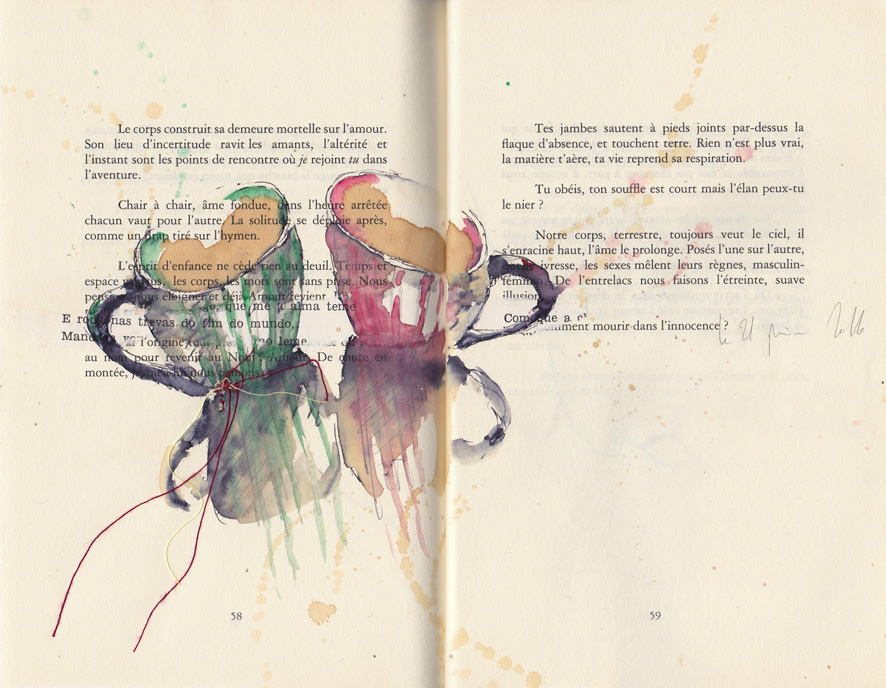 Le corps construit sa demeure mortelle sur l'amour.
Son lieu d'incertitude ravit les amants, l'altérité et
l'instant sont les points de rencontre où je rejoint tu dans
l'aventure.
Chair à chair, âme fondue, dans l'heure arrêtée
chacun vaut pour l'autre. La solitude se déploie après,
comme un drap tiré sur l'hymen.
L'esprit d'enfance ne cède rien au deuil. Temps et
espace les corps, les mots sont sans prise. Nous
nous éloigner et déjà Amour revient.
que me a alma teme
E nas trevas do fim do mundo,
l'origine
au nom pour revenir au Nom Amour. De chute en
montée, nous
58
Tes jambes sautent à pieds joints par-dessus la
flaque d'absence, et touchent terre. Rien n'est plus vrai,
la matière t'aère, ta vie reprend sa respiration.
Tu obéis, ton souffle est court mais l'élan peux-tu
le nier ?
Notre corps, terrestre, toujours veut le ciel, il
s'enracine haut, l'âme le prolonge. Posés l'une sur l'autre,
ivresse, les sexes mêlent leurs règnes, masculin-
féminin. De l'entrelacs nous faisons l'étreinte, suave
illusion
que a
mourir dans l'innocence ?
le 21
59